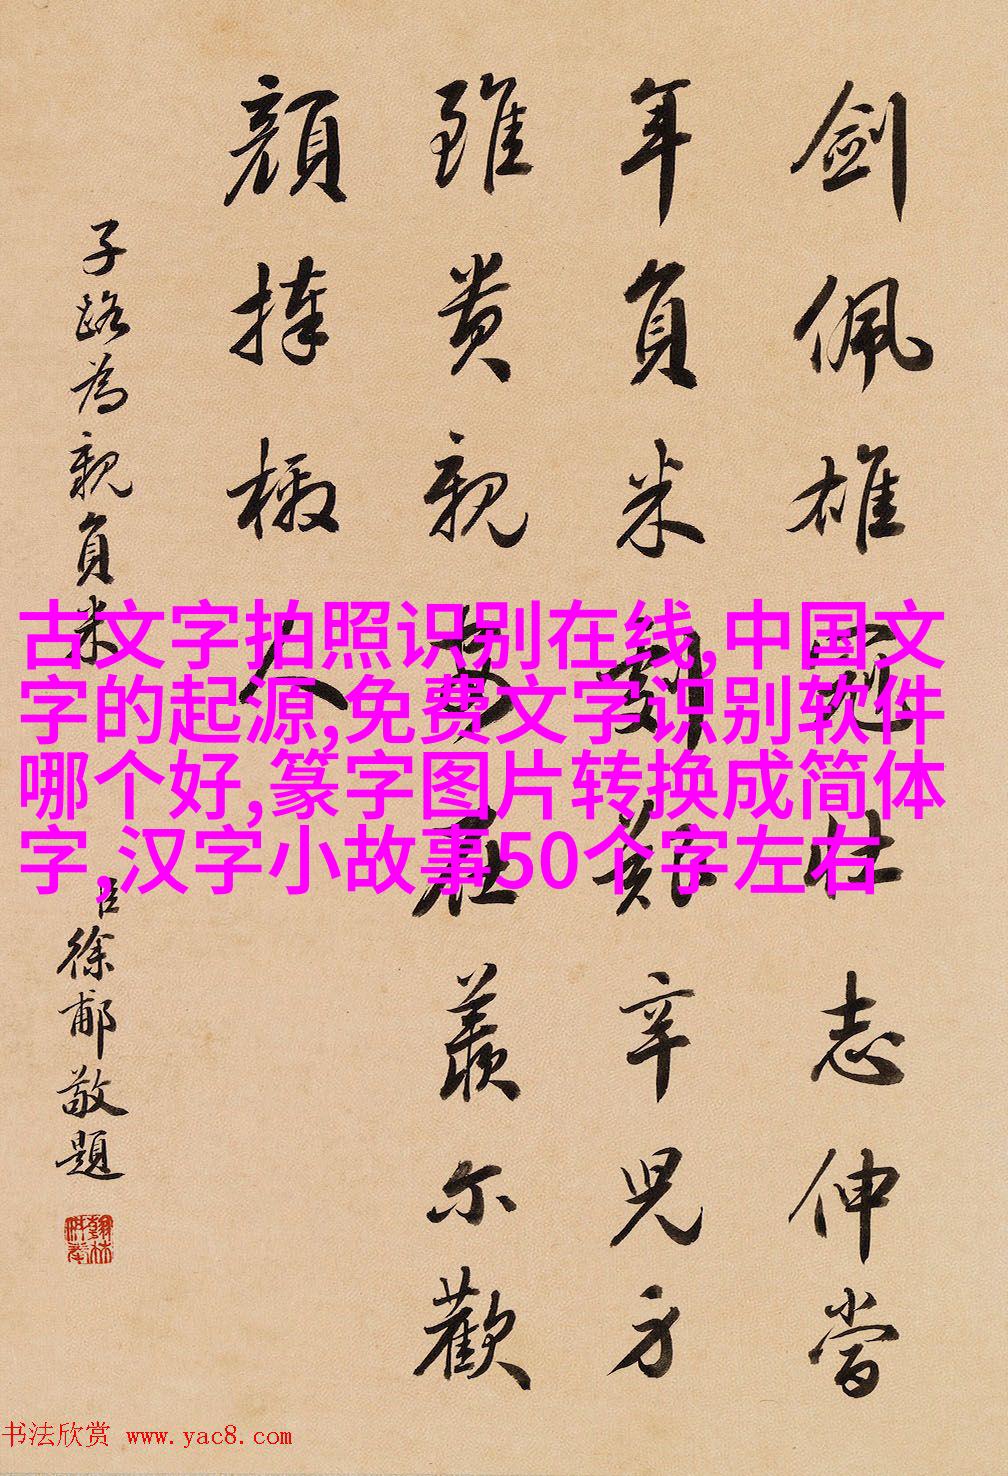 劍佩雄冠壯志伸當
年負米艱辛兒身
雖貴親安在羨尔歡
顏捧檄人
子路為親負米
臣徐郙敬題
古文字拍照识别在线,中国文
字的起源,免费文字识别软件
哪个好,篆字图片转换成简体
字,汉字小故事50个字左右
书法欣赏 www.yac8.com